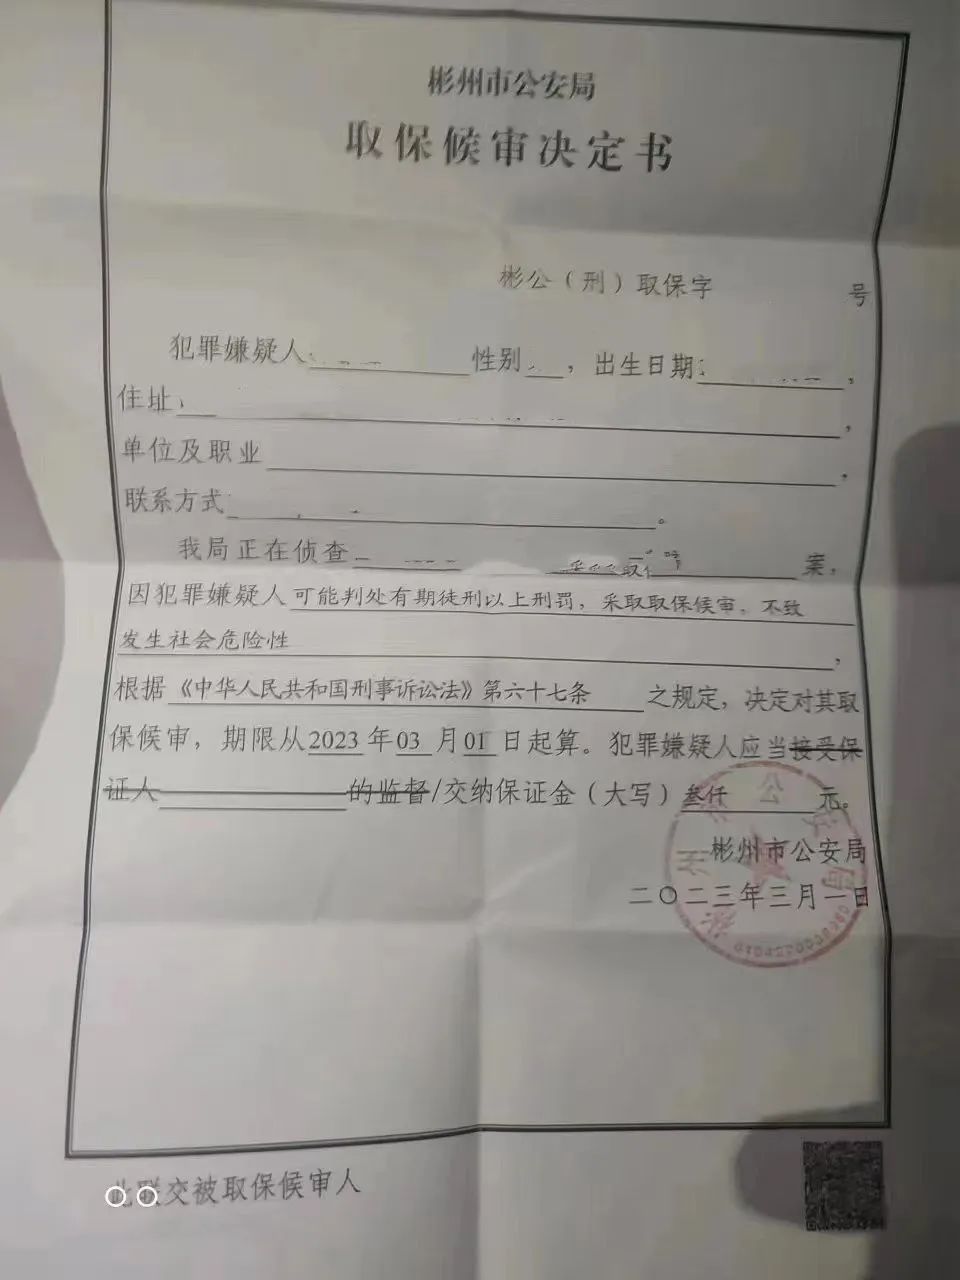 彬州市公安局
取保候审决定书
彬公（刑）取保字 号
犯罪嫌疑人 性别 ，出生日期: ，
住址 ，
单位及职业 ，
联系方式 。
我局正在侦查 案，
因犯罪嫌疑人可能判处有期徒刑以上刑罚，采取取保候审，不致
发生社会危险性 ，
根据《中华人民共和国刑事诉讼法》第六十七条 之规定，决定对其取
保候审，期限从2023年03月01日起算。犯罪嫌疑人应当接受保
证人 的监督/交纳保证金（大写）叁仟 元。
彬州市公安局
二〇二三年三月一日
此联交被取保候审人